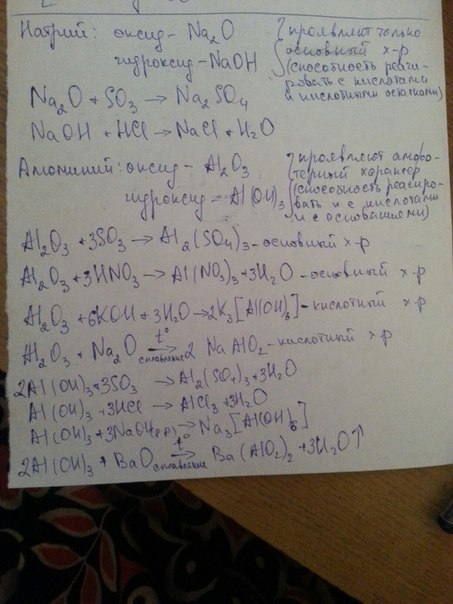 Натрий: оксид - Na₂O } проявляет только
гидроксид - NaOH основный х-р
(способность реаги-
ровать с кислотами
и кислотными остатками)
Na₂O + SO₃ → Na₂SO₄
NaOH + HCl → NaCl + H₂O
Алюминий: оксид - Al₂O₃ } проявляют амфо-
терный характер
гидроксид - Al(OH)₃ (способность реагиро-
вать и с кислотами
и с основаниями)
Al₂O₃ + 3SO₃ → Al₂(SO₄)₃ - основный х-р
Al₂O₃ + 3HNO₃ → Al(NO₃)₃ + 3H₂O - основный х-р
Al₂O₃ + 6KOH + 3H₂O → 2K₃[Al(OH)₆] - кислотный х-р
Al₂O₃ + Na₂O t° сплавление → 2 NaAlO₂ - кислотный х-р
2Al(OH)₃ + 3SO₃ → Al₂(SO₄)₃ + 3H₂O
Al(OH)₃ + 3HCl → AlCl₃ + 3H₂O
Al(OH)₃ + 3NaOH(р-р) → Na₃[Al(OH)₆]
2Al(OH)₃ + BaO t° сплавление → Ba(AlO₂)₂ + 3H₂O↑